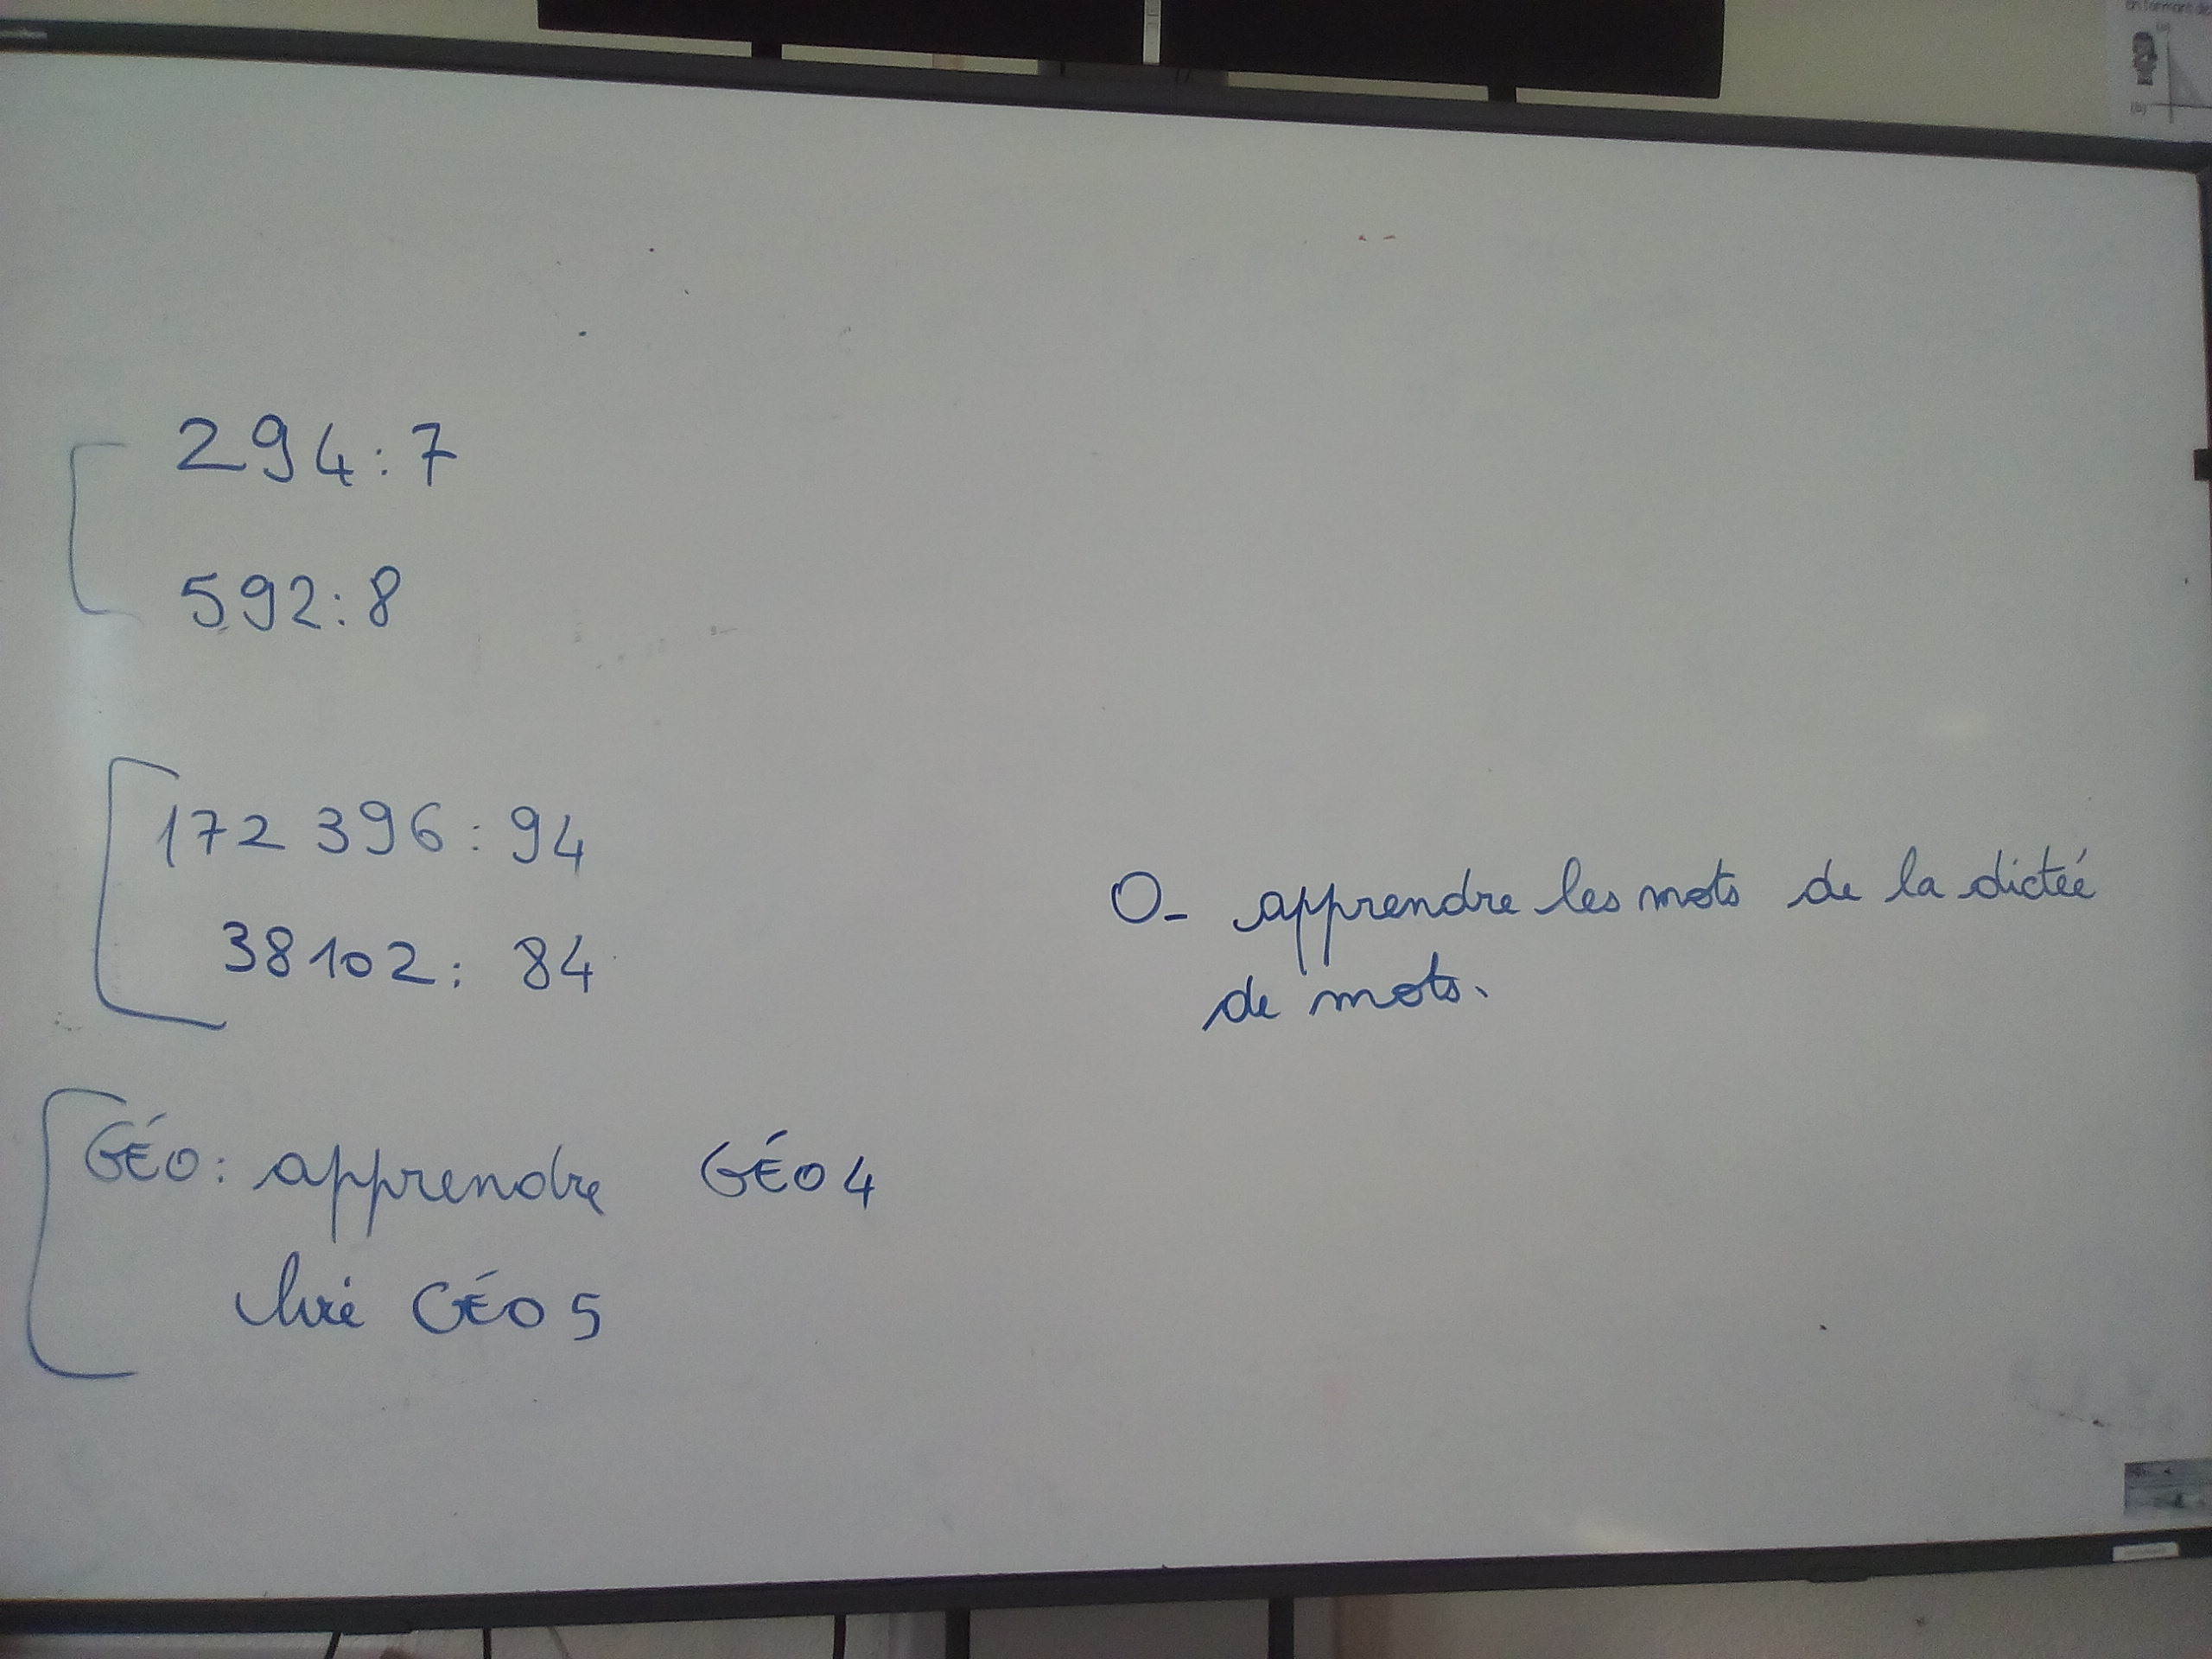 294:7
592:8
172 396: 94
38102: 84
GÉO: apprendre GÉO 4
lire GÉO 5
O- apprendre les mots de la dictée
de mots.